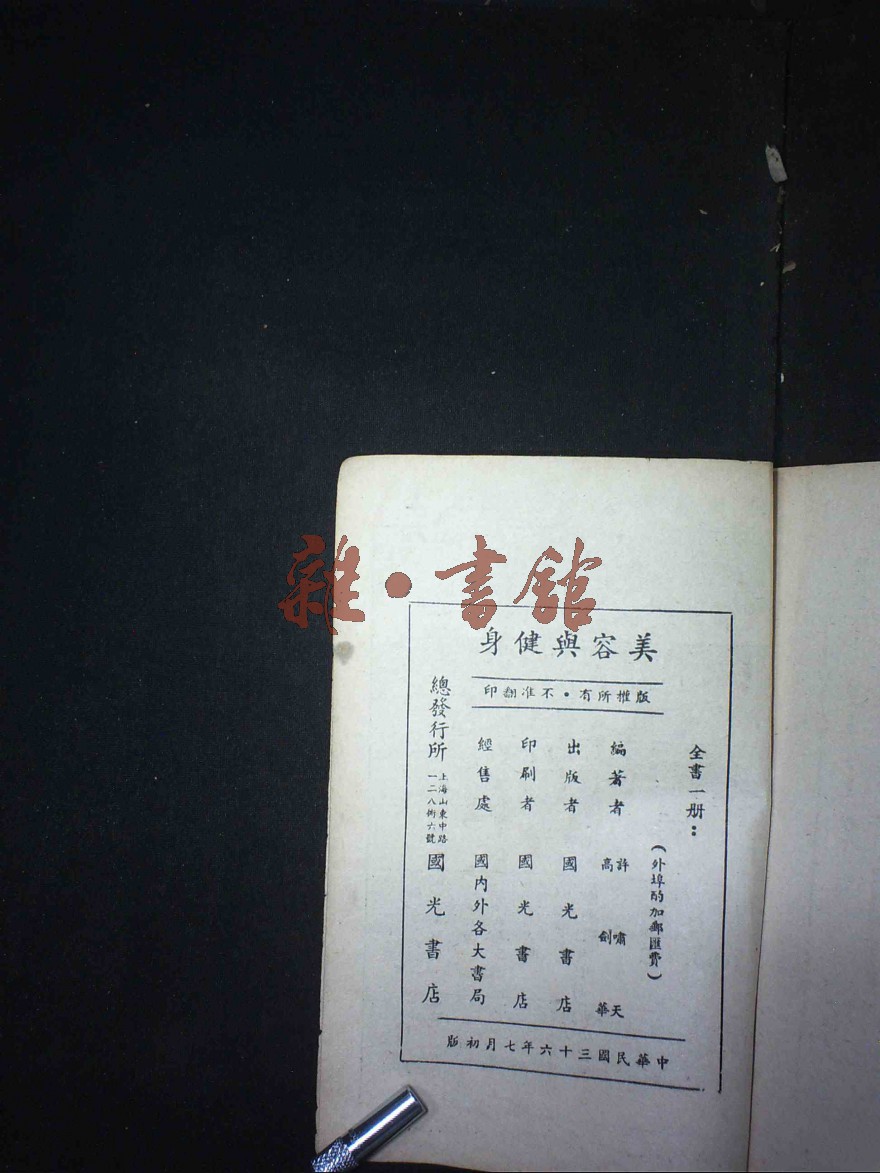 雜·書館
美容與健身
版權所有·不准翻印
全書一册：
(外埠酌加郵匯費)
編著者 許嘯天 高劍華
出版者 國光書店
印刷者 國光書店
經售處 國內外各大書局
總發行所 上海山東中路一二八衖六號 國光書店
中華民國三十六年七月初版